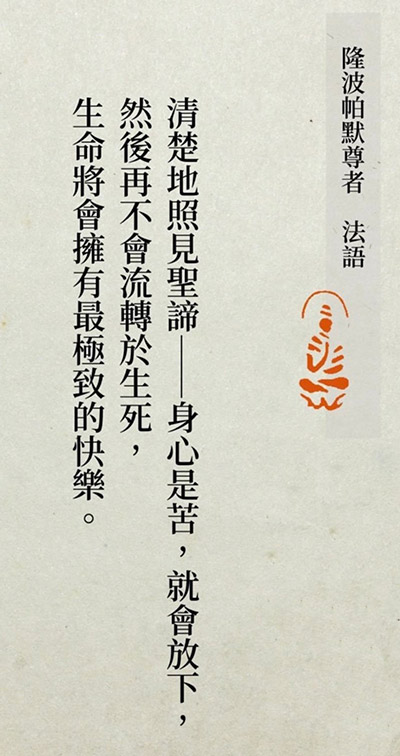 隆波帕默尊者 法語
清楚地照見聖諦——身心是苦，就會放下，
然後再不會流轉於生死，
生命將會擁有最極致的快樂。